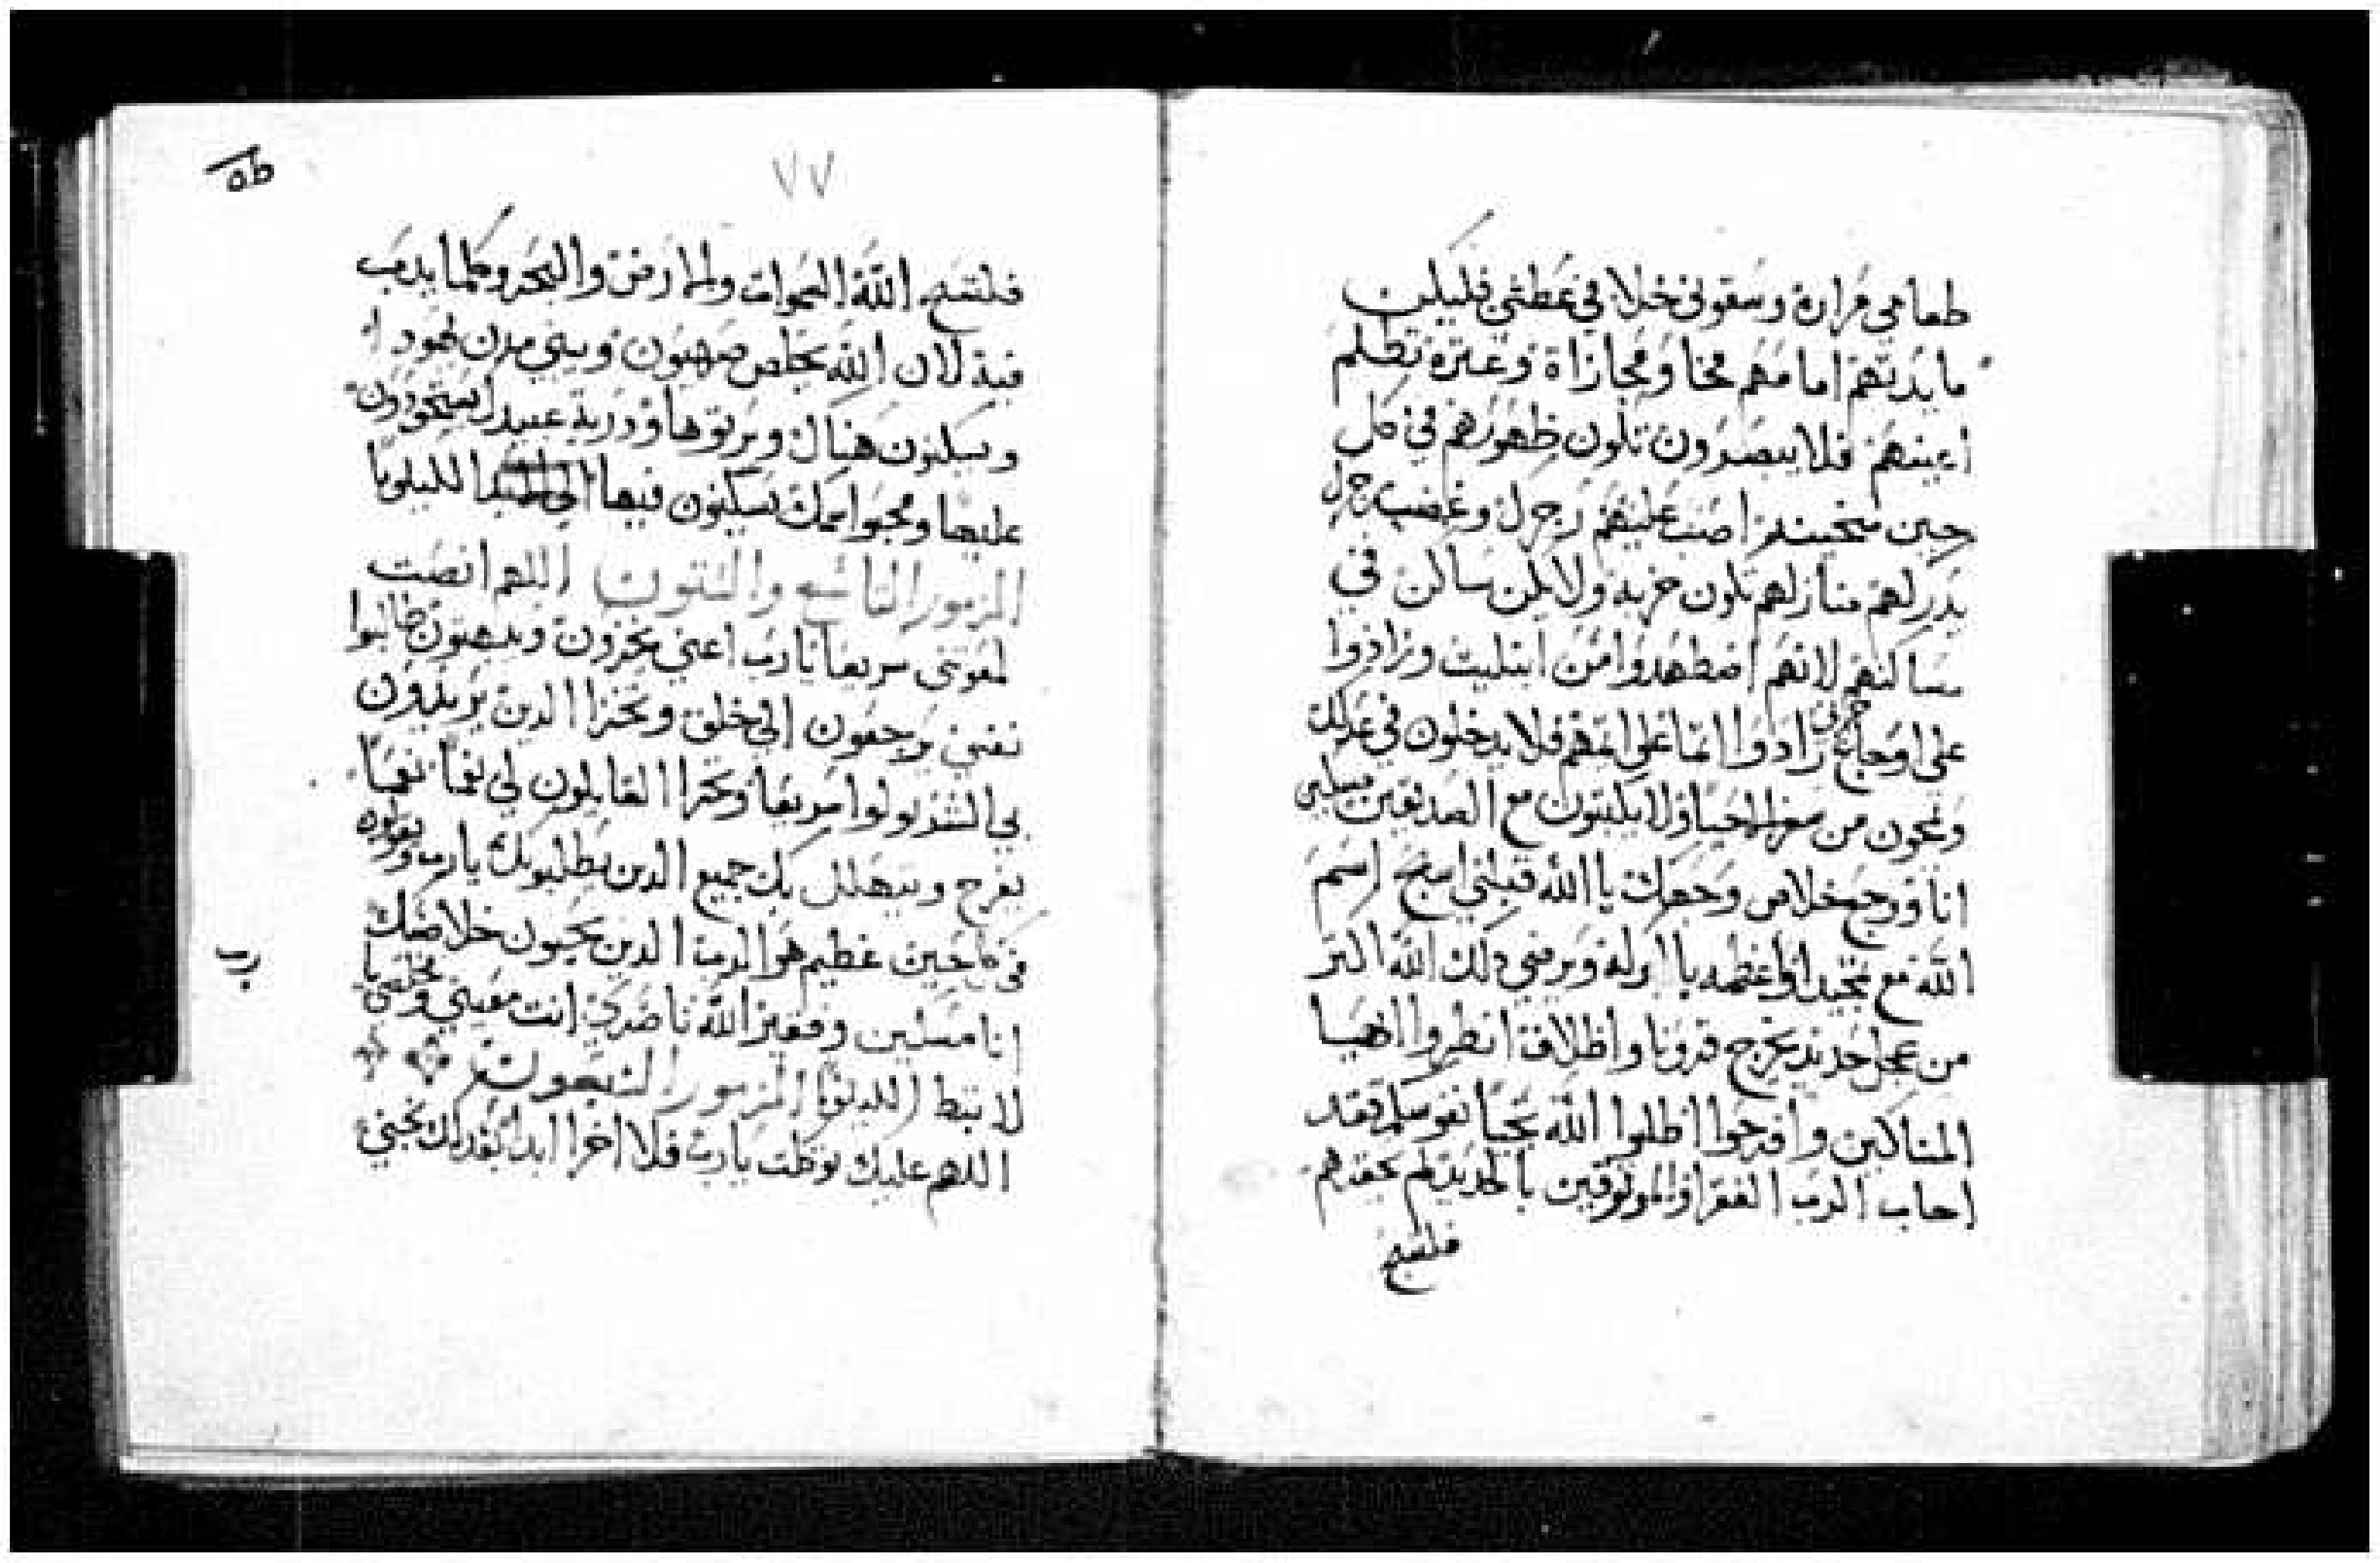 طعامي مرارة وسقوني خلا في عطشي فليكن
مايدتهم امامهم فخا ومجازاة وعثرة تظلم
اعينهم فلا يبصرون تكون ظهورهم في كل
حين منحنيه اصبب عليهم رجزك وغضب رجزك
يدركهم منازلهم تكون خربه ولا يكن ساكن في
مساكنهم لانهم اضطهدوا من ابتليت وزادوا
على اوجاع جرحي زادوا اثما على اثمهم فلا يدخلون في عدلك
ونمحون من سفر الحيا ولا يكتبون مع الصديقين مسكين
انا ووجع خلاص وجهك يا الله قبلني اسبح اسم
الله مع تمجيد اواعظمه با ويرضي دلك الله اكتر
من عجل حديد يخرج قرونا واظلافا انظروا ايها
المساكين وافرحوا اطلبوا الله تحيا نفوسكم فقد
اجاب الرب الفقرا والموتوقين بالحديد لم يحقدهم
فلتسبح
٧٧
فلتسبح الله السموات والارض والبحر وكلما يدب
فيه لان الله يخلص صهيون ويبني مدن يهودا
ويسكنون هناك ويرثوها وذرية عبيدك يستحودون
عليها ومحبوا اسمك يسكنون فيها الليلويا
المزمور التاسع والستون اللهم انصت
لمعونتي سريعا يا رب اعني يخزون ويبهتون طالبوا
نفسي يرجعون الى خلف ويخزا الدين يريدون
لي الشر يولوا سريعا ويخزا القايلون لي نعما نعما
يفرح ويتهلل بك جميع الدين يطلبونك يا رب ويقولون
في كل حين عظيم هو الرب الدين يحبون خلاصك
انا مسكين وفقير الله ناصري انت معيني ومخلصي يا
رب
لا تبط الليلويا المزمور السبعون
اللهم عليك توكلت يا رب فلا اخزا ابدا بعدلك نجيني